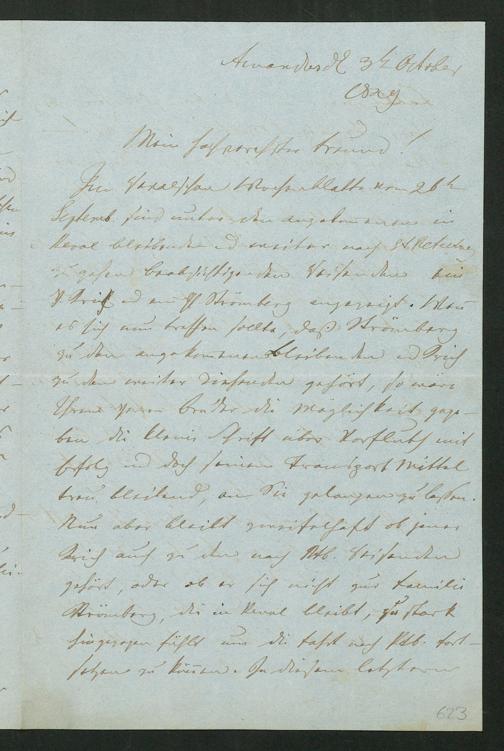 3t October
1829
Mein hochverehrter Freund!
Im Revalschen Wochenblatte vom 26t
Septemb. sind unter den angekommenen in
Reval bleibenden und weiter nach St. Petersburg
zu gehen beabsichtigenden Reisenden ein
und ein Strömberg angezeigt. Wenn
es sich nun treffen sollte, daß Strömberg
zu den angekommenen bleibenden und
zu den weiter Reisenden gehört, so wäre
Ihrem Herrn Bruder die Möglichkeit gege-
ben die kleine Schrift über mit
Erfolg und doch seinem Transport Mittel
treu bleibend, an Sie gelangen zu lassen.
Nun aber bleibt zweifelhaft ob jener
auch zu den nach Ptb. Reisenden
gehört, oder ob er sich nicht zur Familie
Strömberg, die in Reval bleibt, zu stark
hingezogen fühlt um die Fahrt nach Ptb. fort-
setzen zu können. In diesem letztern
623